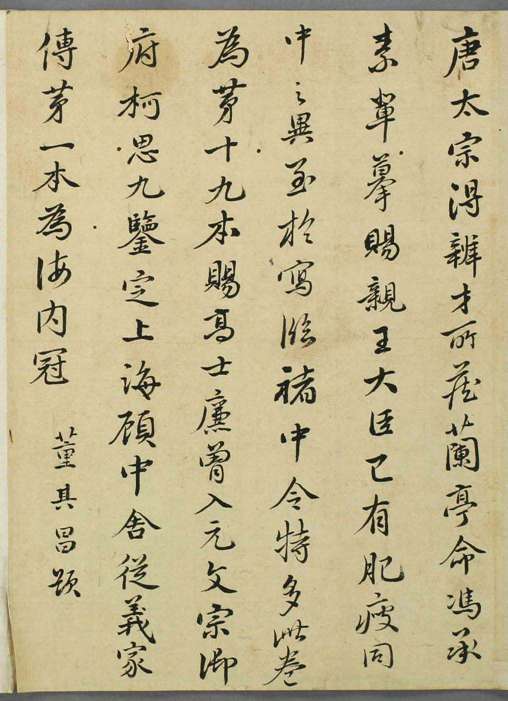 唐太宗淂辨才所藏蘭亭命馮承
素輩摹賜親王大臣已有肥瘦同
中之異至於寫臨褚中令特多此卷
為苐十九本賜高士廉曾入元文宗御
府柯思九鑒定上海顧中舍從義家
傳苐一本為海内冠
董其昌題